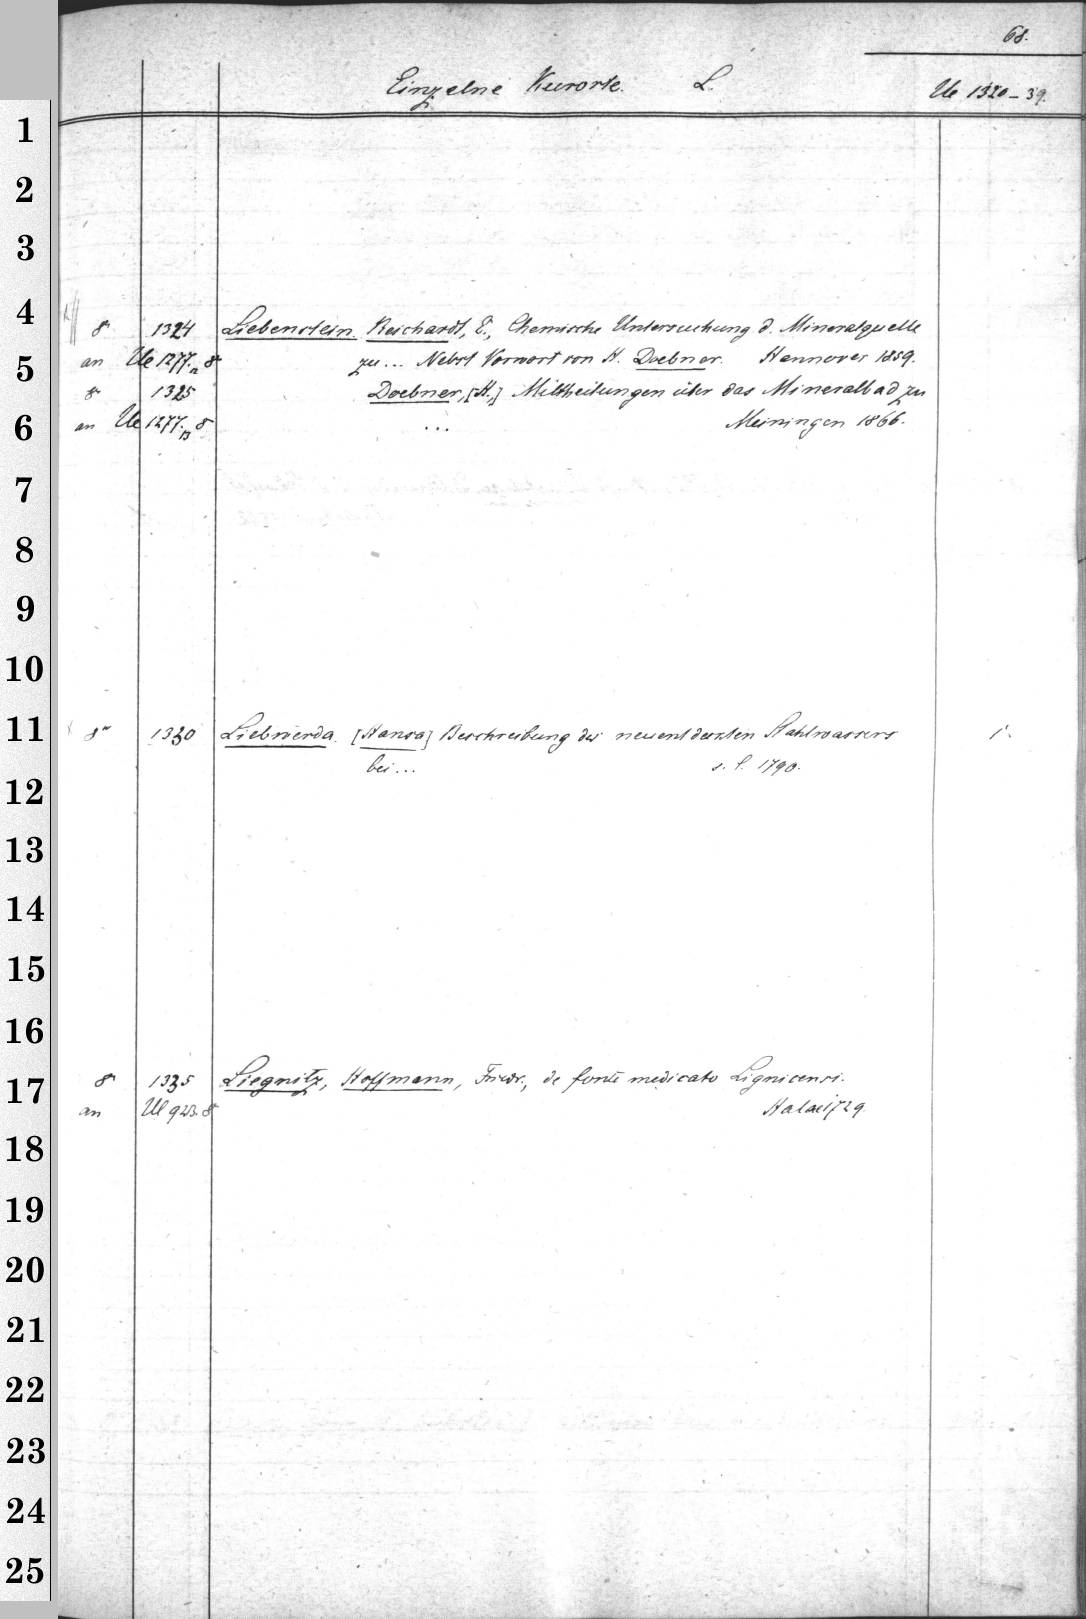 68.
Einzelne Kurorte. L. Ue 1320-39.
1
2
3
4
8° 1324 Liebenstein. Reichardt, E., Chemische Untersuchung d. Mineralquelle
5
an Ue 1277. 8° zu... Nebst Vorwort von H. Doebner. Hannover 1859.
8° 1325 Doebner, [H.,] Mittheilungen über das Mineralbad zu
6
an Ue 1277. 8° ... Meiningen 1866.
7
8
9
10
11
8° 1330 Liebwerda. [Hansa] Beschreibung des neuentdeckten Stahlwassers 1.
bei... s. l. 1790.
12
13
14
15
16
8° 1335 Liegnitz, Hoffmann, Friedr., de fonte medicato Lignicensi.
17
an Ue 923. 8° Halae 1729
18
19
20
21
22
23
24
25